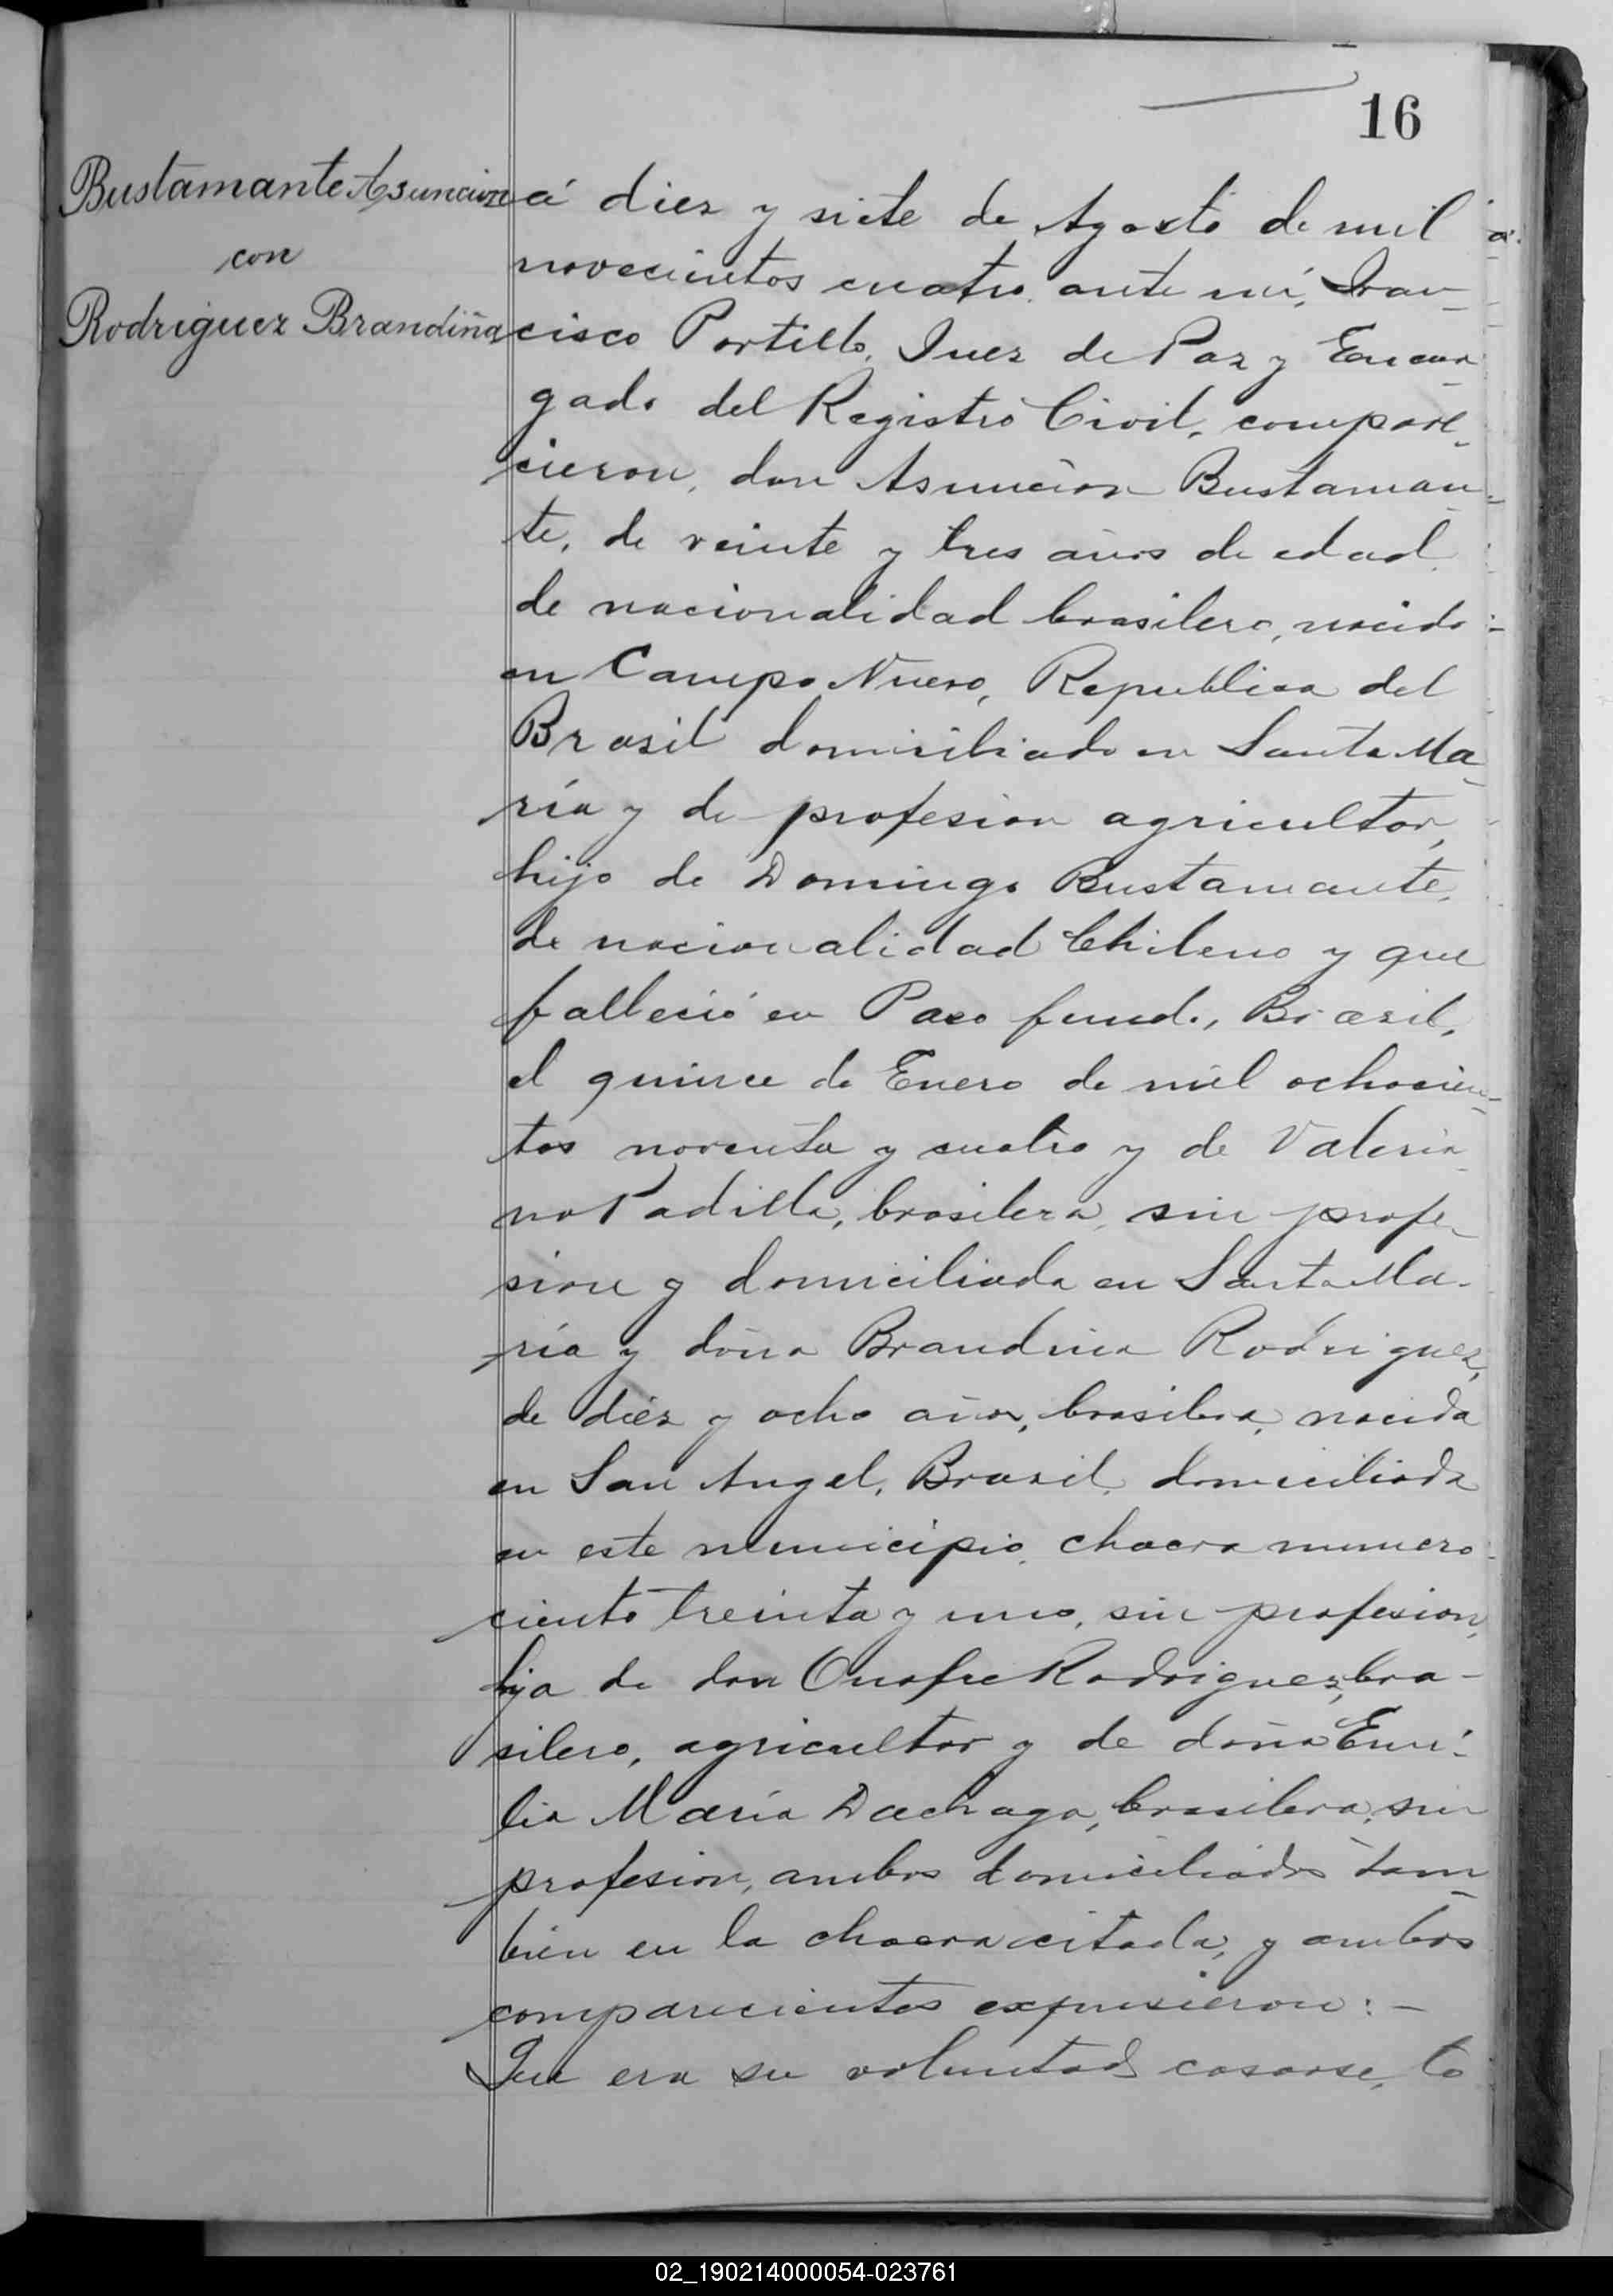 16
Bustamante Asuncion
con
Rodriguez Brandiña
á diez y siete de Agosto de mil
novecientos cuatro, ante mí, Fran-
cisco Portillo, Juez de Paz y Encar-
gado del Registro Civil, compare-
cieron, don Asunción Bustaman-
te, de veinte y tres años de edad
de nacionalidad brasilero, nacido
en Campo Nuevo, Republica del
Brasil domiciliado en Santa Ma-
ría y de profesion agricultor,
hijo de Domingo Bustamante,
de nacionalidad Chileno y que
falleció en Paso fundo, Brasil,
el quince de Enero de mil ochocien-
tos noventa y cuatro y de Valeria-
na Padilla, brasilera, sin profe-
sion y domiciliada en Santa Ma-
ría y doña Brandina Rodriguez,
de diez y ocho años, brasilera, nacida
en San Angel, Brasil, domiciliada
en este municipio, chacra numero
ciento treinta y uno, sin profesion,
hija de don Onofre Rodriguez, bra-
silero, agricultor y de doña Emi-
lia María Dachaga, brasilera, sin
profesion, ambos domiciliados tam-
bien en la chacra citada, y ambos
comparecientes expusieron: -
Que era su voluntad casarse, lo
02_190214000054-023761